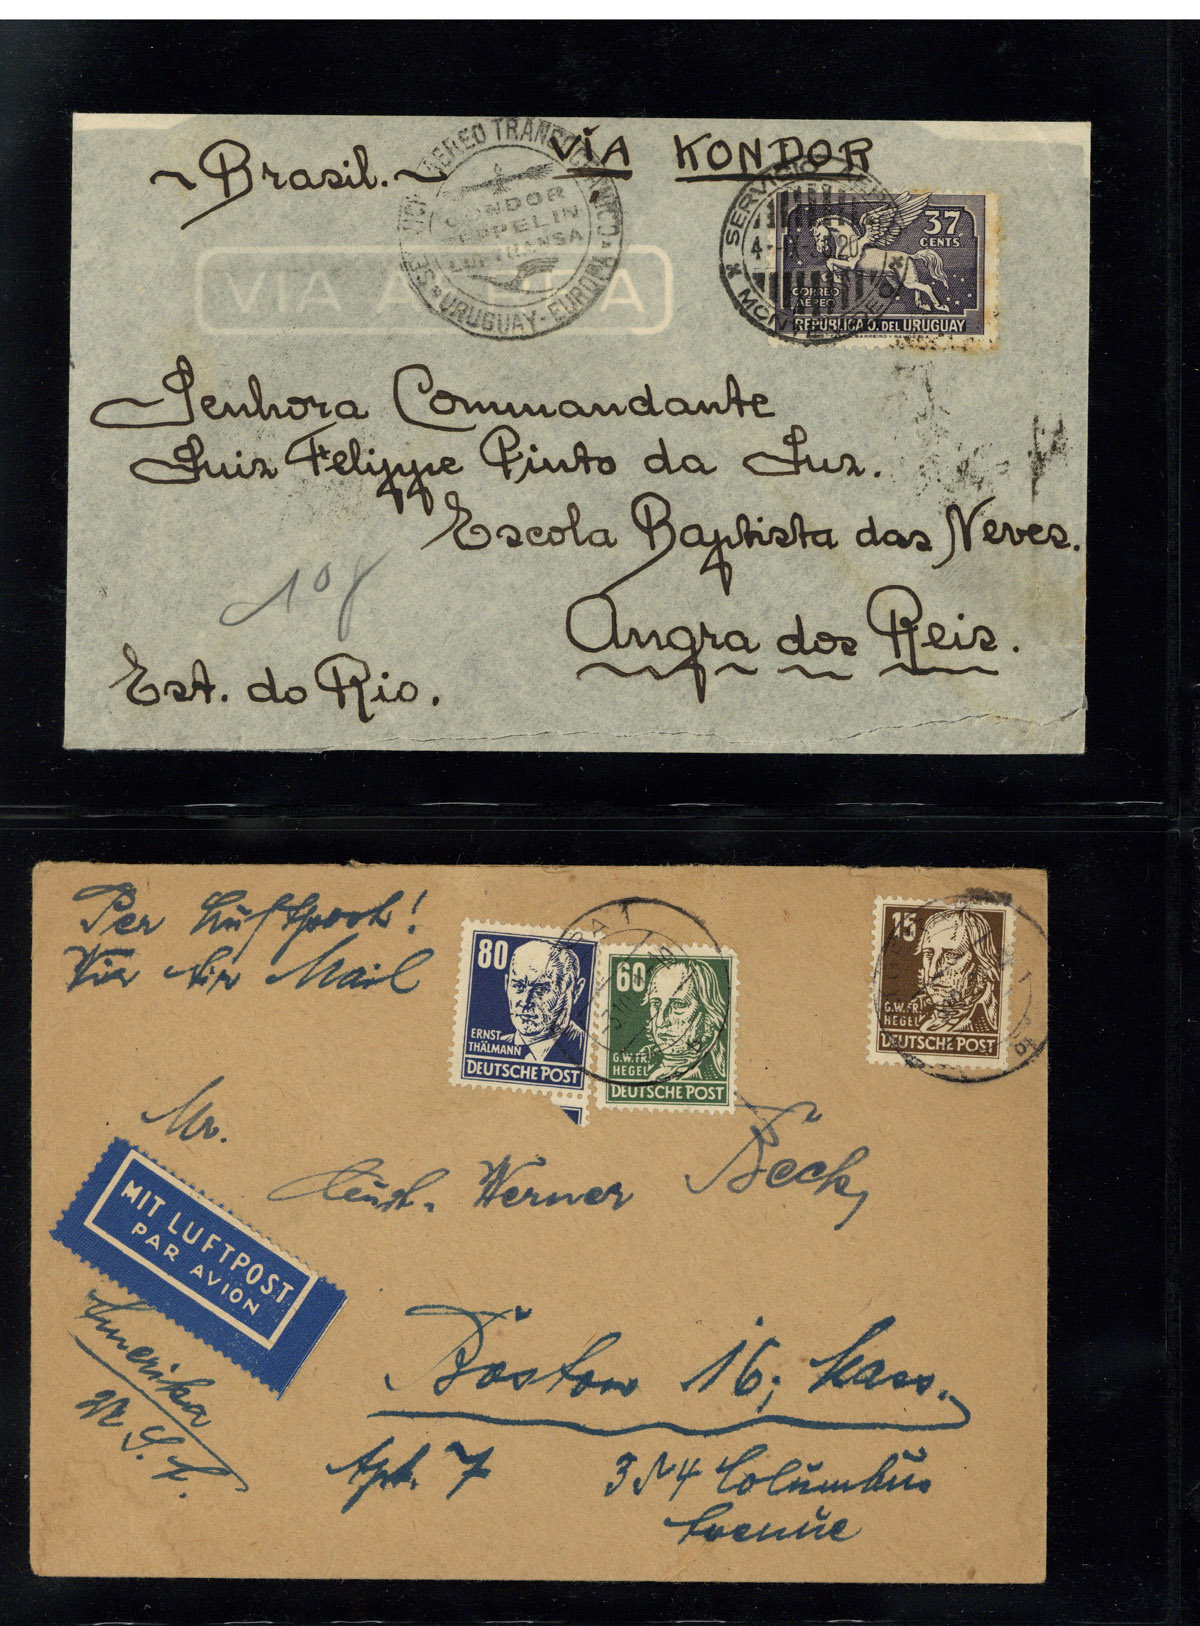 ~Brasil.~
VIA KONDOR
SERVICIO AEREO TRANSOCEANICO
CONDOR
ZEPPELIN
LUFTHANSA
URUGUAY-EUROPA
VIA AEREA
SERVICIO
MONTEVIDEO
37
CENTS
CORREO
AÉREO
REPÚBLICA O. DEL URUGUAY
Senhora Commandante
Luiz Felippe Pinto da Luz.
Escola Baptista das Neves.
Angra dos Reis.
108
Est. do Rio.
Per Luftpost!
Via Air Mail
80
ERNST
THÄLMANN
DEUTSCHE POST
60
G.W.FR.
HEGEL
DEUTSCHE POST
15
G.W.FR.
HEGEL
DEUTSCHE POST
Mr.
Werner Beck,
MIT LUFTPOST
PAR AVION
Amerika
U.S.A.
Boston 16, Mass.
Apt. 7 354 Columbus
Avenue